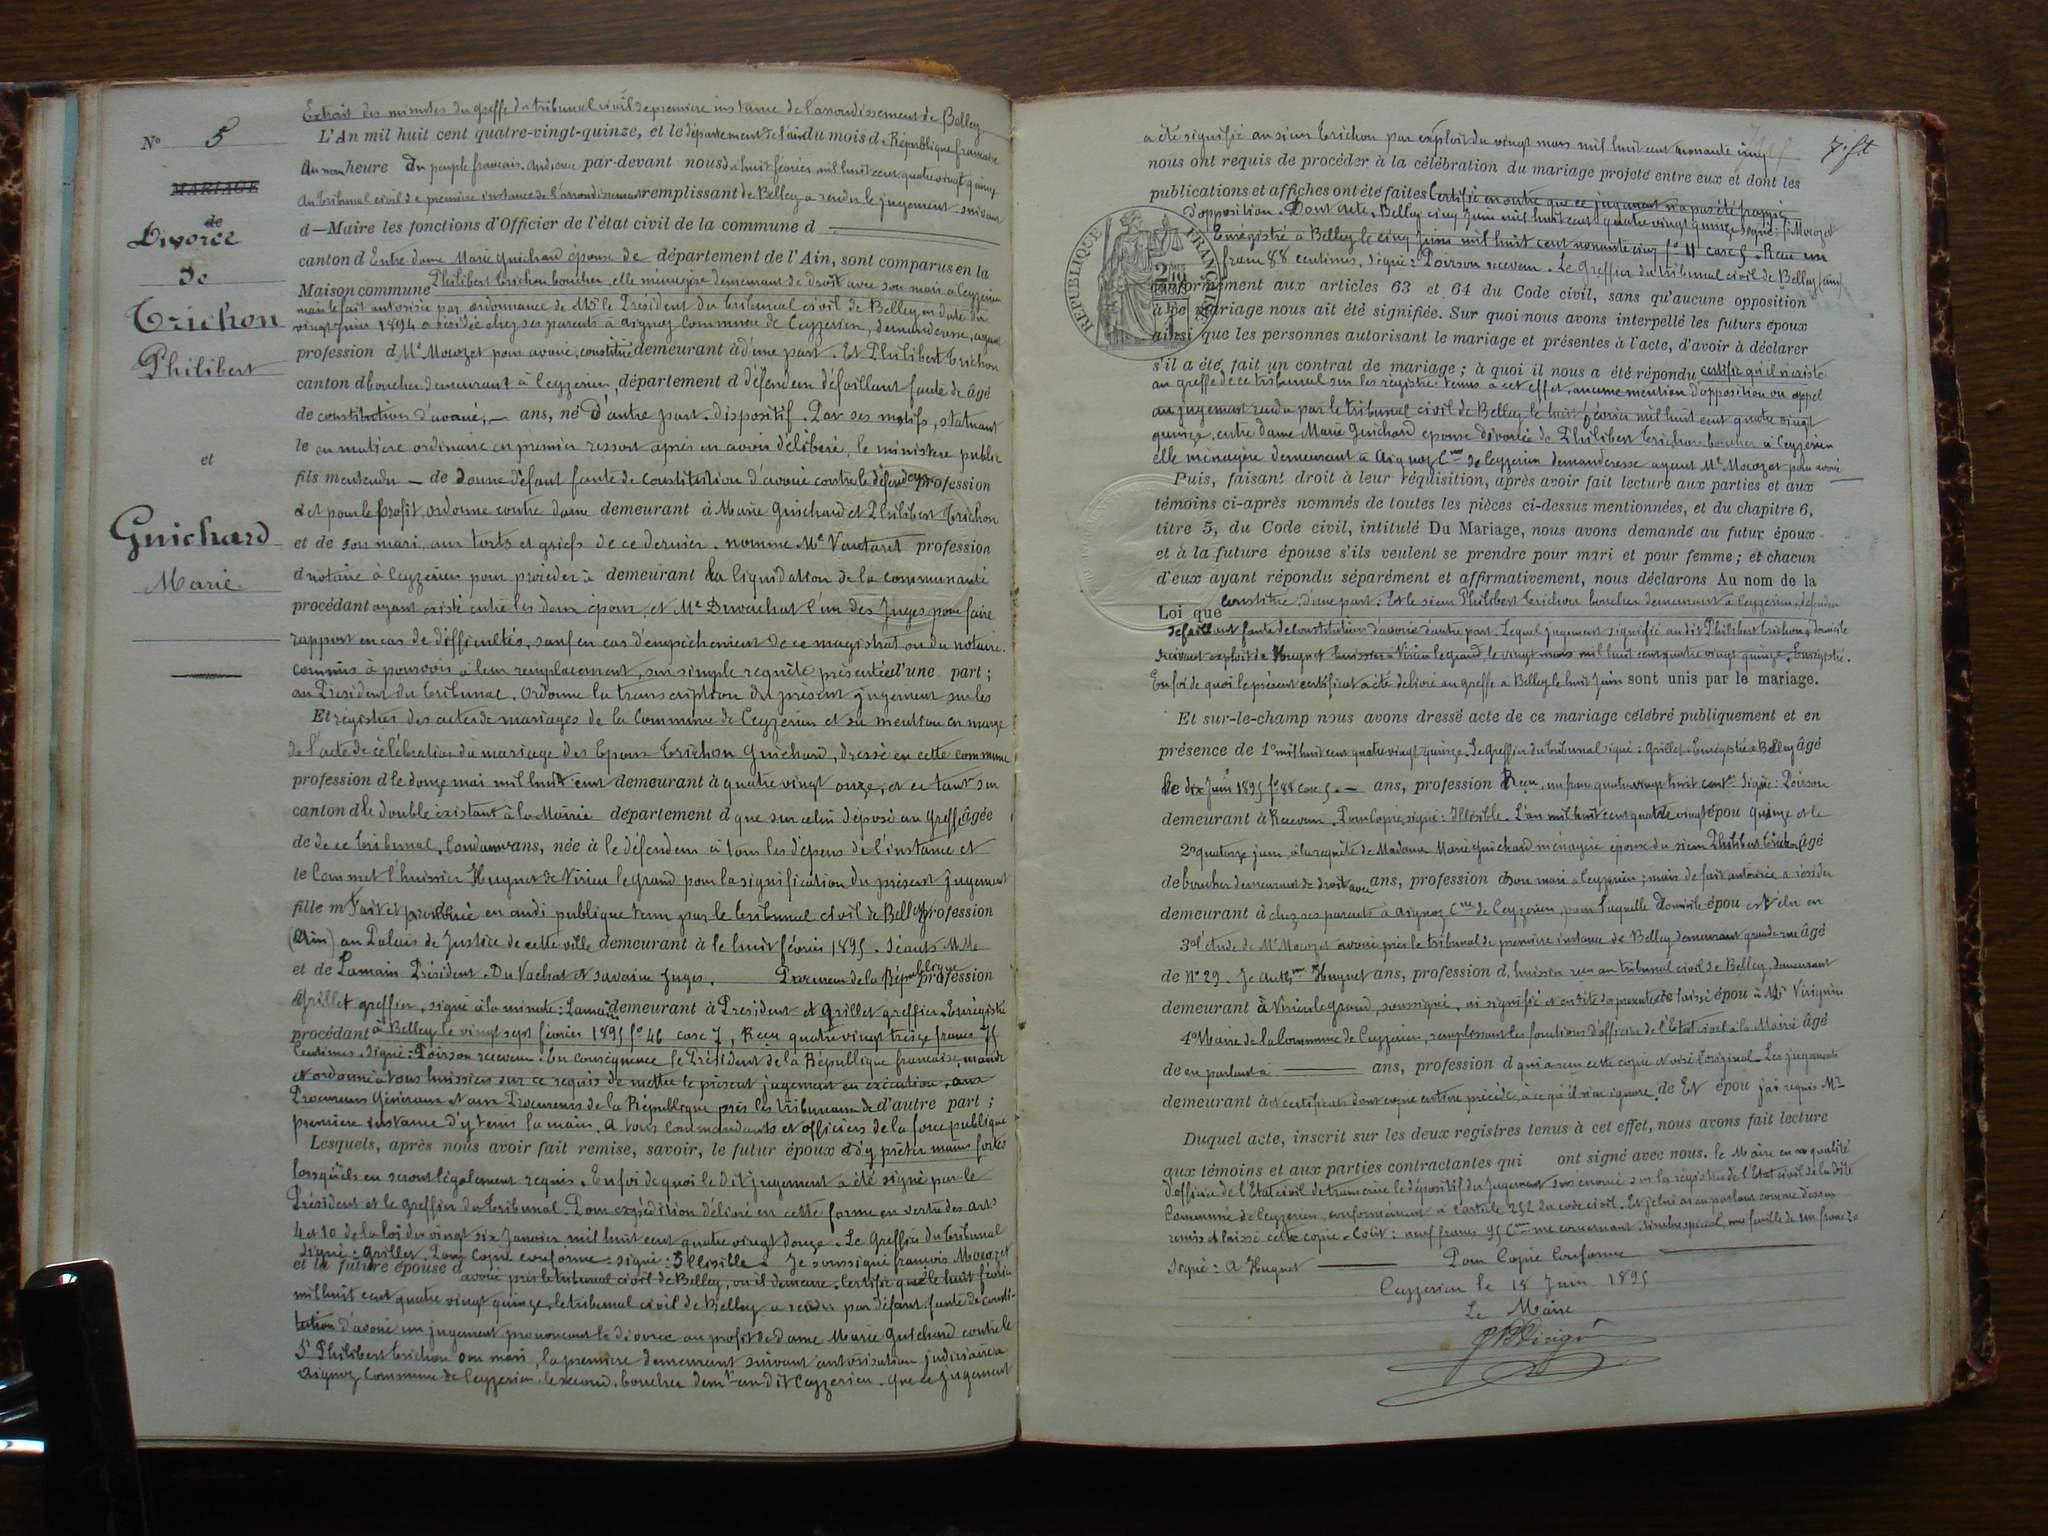 Extrait des minutes du greffe du tribunal civil de première instance de l'arrondissement de Belley
No 5
L'An mil huit cent quatre-vingt-quinze, et le département de l'ain du mois d République française
Au nom heure du peuple français. par-devant nous du huit février mil huit cent quatre vingt quinze
MARIAGE
du tribunal civil de première instance de l'arrondissement remplissant de Belley a rendu le jugement suivant
d — Maire les fonctions d'Officier de l'état civil de la commune d
de
Divorce
canton d Entre dame Marie Guichard épouse de département de l'Ain, sont comparus en la
de
Philibert Trichon boucher, elle ménagère demeurant de droit avec son mari à Ceyzerieu
Maison commune
mais de fait autorisée par ordonnance de Mr le Président du tribunal civil de Belley en date du
Trichon
vingt Juin 1894 a résidée chez ses parents à aignoz Commune de Ceyzerieu, demanderesse, ayant
Philibert
profession d Me Mocozet pour avoué, constitué demeurant à d'une part. Et Philibert Trichon
canton d boucher demeurant à Ceyzerieu, département d défendeur défaillant faute de âgé
de constitution d'avoué, — ans, né d'autre part. dispositif. Par ses motifs, statuant
le en matière ordinaire en premier ressort après en avoir délibéré, le ministère public
et
fils m entendu — de donne défaut faute de constitution d'avoué contre le défendeur profession
d et pour le profit, ordonne contre dame demeurant à Marie Guichard et Philibert Trichon
Guichard
et de son mari, aux torts et griefs de ce dernier. nomme Me Vautaret profession
d notaire à Ceyzerieu pour procéder à demeurant la liquidation de la communauté
Marie
procédant ayant existé entre les deux époux, et Me Duvachat l'un des Juges pour faire
rapport en cas de difficultés, sauf en cas d'empêchement de ce magistrat ou du notaire
commis à pourvoir à leur remplacement, sur simple requête présentée d'une part ;
au Président du tribunal. Ordonne la transcription du présent jugement sur les
Et registres des actes de mariages de la Commune de Ceyzerieu et sa mention en marge
de l'acte de célébration du mariage des Epoux Trichon Guichard, dressé en cette commune
profession d le douze mai mil huit cent demeurant à quatre vingt onze, et ce tant sur
canton d le double existant à la Mairie département d que sur celui déposé au Greffe âgée
de de ce tribunal, Condamne ans, née à le défendeur à tous les dépens de l'instance et
le Commet l'huissier Hugnet de Virieu le grand pour la signification du présent jugement
fille m Fait et prononcé en audi publique tenue par le tribunal civil de Belley profession
(Ain) au Palais de Justice de cette ville demeurant à le huit février 1895. Séants MMrs
et de Lamain Président. Du Vachat et Savarin Juges. Procureur de la République profession
d Grillet greffier, signé à la minute : Lamain demeurant à Président et Grillet greffier. Enregistré
procédant à Belley le vingt sept février 1895 fo 46 case 7, Reçu quatre vingt treize francs 75
Centimes. Signé : Poirson receveur. En conséquence le Président de la République française, mande
et ordonne à tous huissiers sur ce requis de mettre le présent jugement en exécution, aux
Procureurs Généraux et aux Procureurs de la République près les tribunaux de d'autre part ;
première instance d'y tenir la main. A tous Commandants et officiers de la force publique
Lesquels, après nous avoir fait remise, savoir, le futur époux d d'y prêter main forte
lorsqu'ils en seront légalement requis. En foi de quoi le dit jugement a été signé par le
Président et le Greffier du tribunal. Pour expédition délivré en cette forme en vertu des arts
4 et 10 de la loi du vingt six Janvier mil huit cent quatre vingt douze. Le Greffier du tribunal
signé : Grillet. Pour Copie conforme : signé : Illisible. Je soussigné françois Mocozet
et la future épouse d
avoué près le tribunal civil de Belley, où il demeure. Certifie que le huit février
mil huit cent quatre vingt quinze, le tribunal civil de Belley a rendu par défaut faute de consti-
tution d'avoué un jugement prononçant le divorce au profit de dame Marie Guichard contre le
Sr Philibert Trichon son mari, la première demeurant suivant autorisation judiciaire à
Aignoz Commune de Ceyzerieu, le second, boucher demt au dit Ceyzerieu. Que ce jugement
7. ft
a été signifié au sieur Trichon par exploit du vingt mars mil huit cent nonante cinq
nous ont requis de procéder à la célébration du mariage projeté entre eux et dont les
publications et affiches ont été faites Certifie en outre que ce jugement n'a pas été frappé
d'opposition. Dont acte. Belley cinq Juin mil huit cent quatre vingt quinze signé : f. Mocozet
Enregistré à Belley le cinq Juin mil huit cent nonante cinq fo 11 case 5. Reçu un
franc 88 centimes, signé : Poirson receveur. Le Greffier du tribunal civil de Belley (ain)
RÉPUBLIQUE FRANÇAISE
conformément aux articles 63 et 64 du Code civil, sans qu'aucune opposition
à ce mariage nous ait été signifiée. Sur quoi nous avons interpellé les futurs époux
ainsi que les personnes autorisant le mariage et présentes à l'acte, d'avoir à déclarer
s'il a été fait un contrat de mariage ; à quoi il nous a été répondu certifie qu'il n'existe
au greffe de ce tribunal sur les registre tenus à cet effet, aucune mention d'opposition ou appel
au jugement rendu par le tribunal civil de Belley le huit février mil huit cent quatre vingt
quinze, entre dame Marie Guichard épouse divorcée de Philibert Trichon boucher à Ceyzerieu
elle ménagère demeurant à Aignoz Cne de Ceyzerieu demanderesse ayant Me Mocozet pour avoué
Puis, faisant droit à leur réquisition, après avoir fait lecture aux parties et aux
témoins ci-après nommés de toutes les pièces ci-dessus mentionnées, et du chapitre 6,
titre 5, du Code civil, intitulé Du Mariage, nous avons demandé au futur époux
et à la future épouse s'ils veulent se prendre pour mari et pour femme ; et chacun
d'eux ayant répondu séparément et affirmativement, nous déclarons Au nom de la
constitué, d'une part : Et le sieur Philibert Trichon boucher demeurant à Ceyzerieu, défendeur
Loi que
défaillant faute de constitution d'avoué d'autre part. Lequel jugement signifié au dit Philibert Trichon à domicile
suivant exploit de Hugnet huissier à Virieu le grand, le vingt mars mil huit cent quatre vingt quinze. Enregistré.
En foi de quoi le présent certificat a été délivré au greffe à Belley le huit Juin sont unis par le mariage.
Et sur-le-champ nous avons dressé acte de ce mariage célébré publiquement et en
présence de 1o mil huit cent quatre vingt quinze. Le Greffier du tribunal signé : Grillet. Enregistré à Belley âgé
de dix Juin 1895 fo 88 case 5. — ans, profession Reçu, un franc quatre vingt huit centes Signé : Poirson
demeurant à Receveur. Pour Copie, signé : Illisible. L'an mil huit cent quatre vingt épou quinze et le
2o quatorze juin, à la requête de Madame Marie Guichard ménagère épouse du sieur Philibert Trichon âgé
de boucher demeurant de droit avec ans, profession d son mari à Ceyzerieu ; mais de fait autorisée à résider
demeurant à chez ses parents à Aignoz Cne de Ceyzerieu, pour laquelle domicile épou est élu en
3o l'étude de Me Mocozet avoué près le tribunal de première instance de Belley demeurant grande rue âgé
de No 29. Je Hugnet ans, profession d, huissier reçu au tribunal civil de Belley, demeurant
demeurant à Virieu le grand, soussigné, ai signifié et en tête des présentes laissé épou à Mr Virignin
4o Maire de la Commune de Ceyzerieu, remplissant les fonctions d'officier de l'Etat civil à la Mairie âgé
de en parlant à — ans, profession d qui a reçu cette copie et visé l'original. Les jugements
demeurant à et certificats dont copie entière précède, à ce qu'il n'en ignore. de Et épou j'ai requis Mr
Duquel acte, inscrit sur les deux registres tenus à cet effet, nous avons fait lecture
aux témoins et aux parties contractantes qui ont signé avec nous. le Maire en sa qualité
d'officier de l'Etat civil de transcrire le dispositif du Jugement sus énoncé sur les registres de l'Etat civil de la dite
Commune de Ceyzerieu, conformément à l'article 252 du code civil. Et je lui ai en parlant comme dessus
remis et laissé cette copie. Coût : neuf francs 95 Cmes me concernant, timbre spécial, une feuille de un franc 20
Signé : A Hugnet — Pour Copie Conforme —
Ceyzerieu le 18 Juin 1895
Le Maire